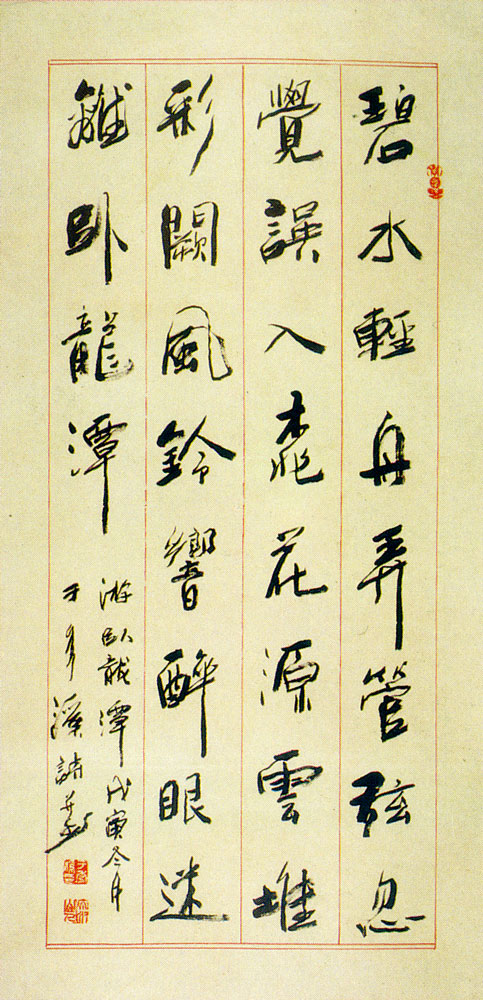 碧水輕舟弄管弦忽
覺誤入桃花源雲堆
彩闕風鈴響醉眼迷
離卧龍潭
游卧龍潭戊寅冬月
溪詩并書